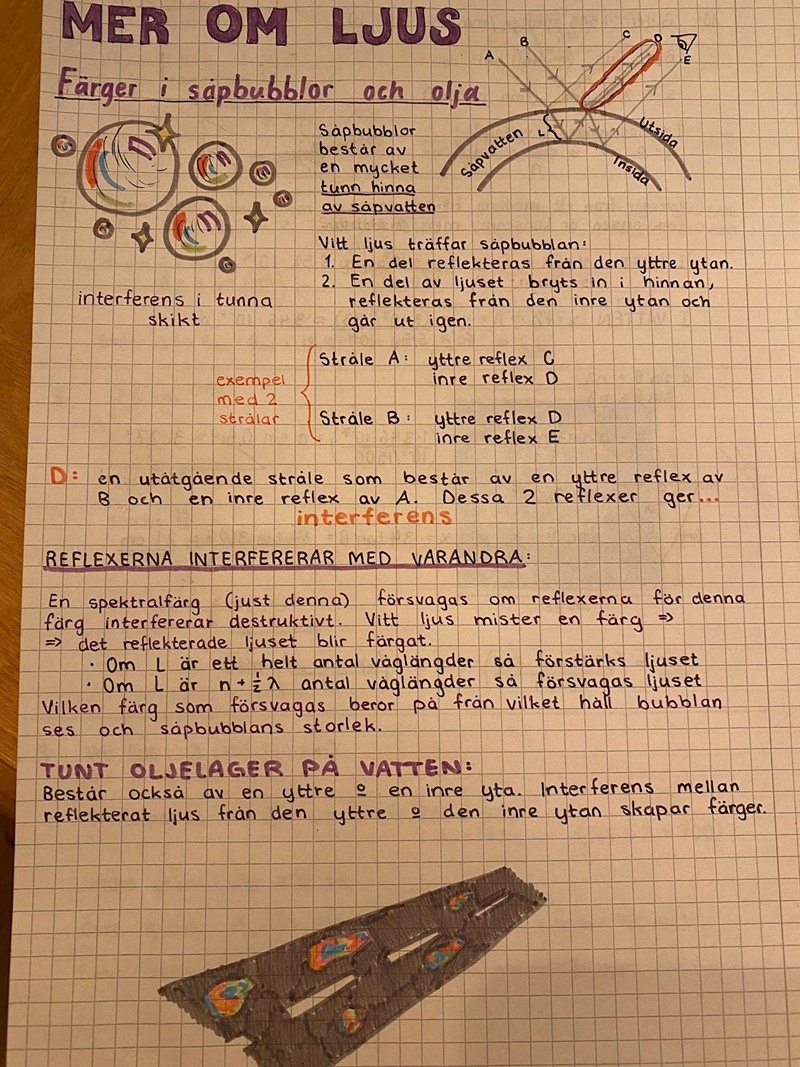 MER OM LJUS
Färger i såpbubblor och olja
A
B
C
D
E
L
Såpvatten
Utsida
Insida
Såpbubblor
består av
en mycket
tunn hinna
av såpvatten
interferens i tunna
skikt
Vitt ljus träffar såpbubblan:
1. En del reflekteras från den yttre ytan.
2. En del av ljuset bryts in i hinnan,
reflekteras från den inre ytan och
går ut igen.
exempel
med 2
strålar
Stråle A: yttre reflex C
inre reflex D
Stråle B: yttre reflex D
inre reflex E
D: en utåtgående stråle som består av en yttre reflex av
B och en inre reflex av A. Dessa 2 reflexer ger...
interferens
REFLEXERNA INTERFERERAR MED VARANDRA:
En spektralfärg (just denna) försvagas om reflexerna för denna
färg interfererar destruktivt. Vitt ljus mister en färg ⇒
⇒ det reflekterade ljuset blir färgat.
· Om L är ett helt antal våglängder så förstärks ljuset
· Om L är n + ½ λ antal våglängder så försvagas ljuset
Vilken färg som försvagas beror på från vilket håll bubblan
ses och såpbubblans storlek.
TUNT OLJELAGER PÅ VATTEN:
Består också av en yttre o en inre yta. Interferens mellan
reflekterat ljus från den yttre o den inre ytan skapar färger.